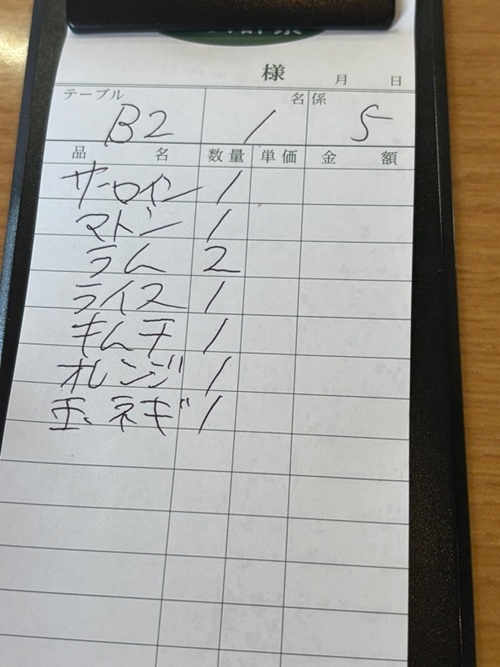 様 月 日
テーブル 名 係
B2 1 5
品 名 数量 単価 金 額
サーロイン 1
マトン 1
ラム 2
ライス 1
キムチ 1
オレンジ 1
玉ネギ 1